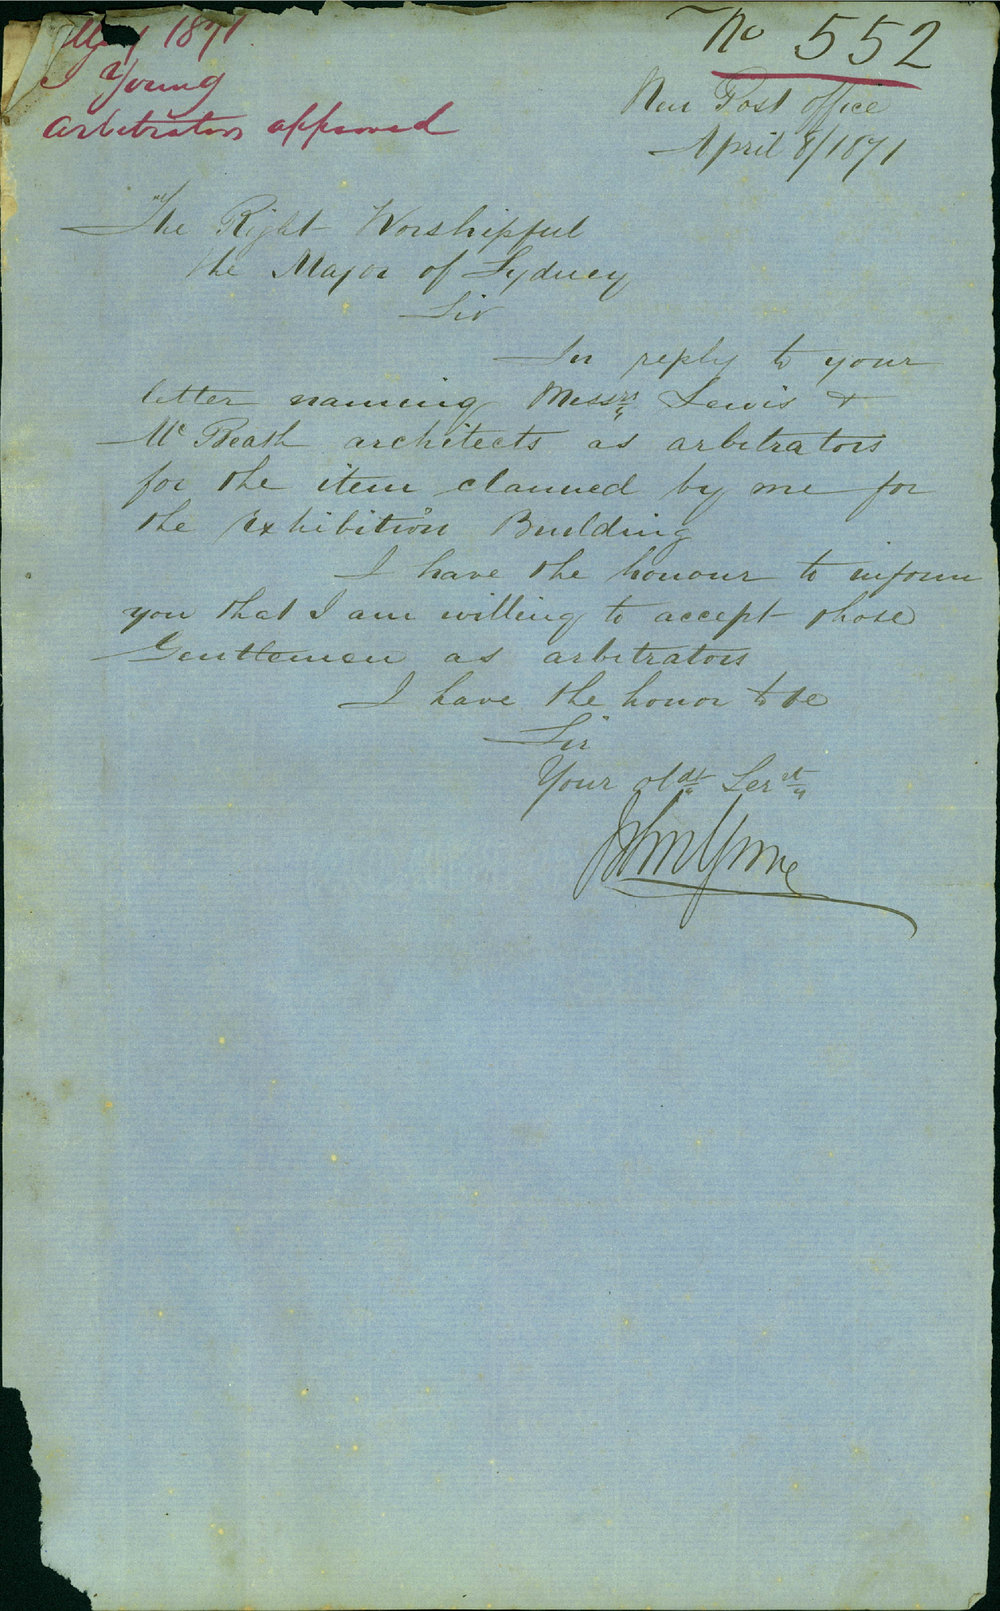 No 552
May 1871
J Young
Arbitrators approved
New Post office
April 8/1871
The Right Worshipful
the Mayor of Sydney
Sir
In reply to your
letter naming Messrs Lewis &
McBeath architects as arbitrators
for the item claimed by me for
the Exhibition Building
I have the honour to inform
you that I am willing to accept those
Gentlemen as arbitrators
I have the honor to be
Sir
Your obdt Servt
John Young